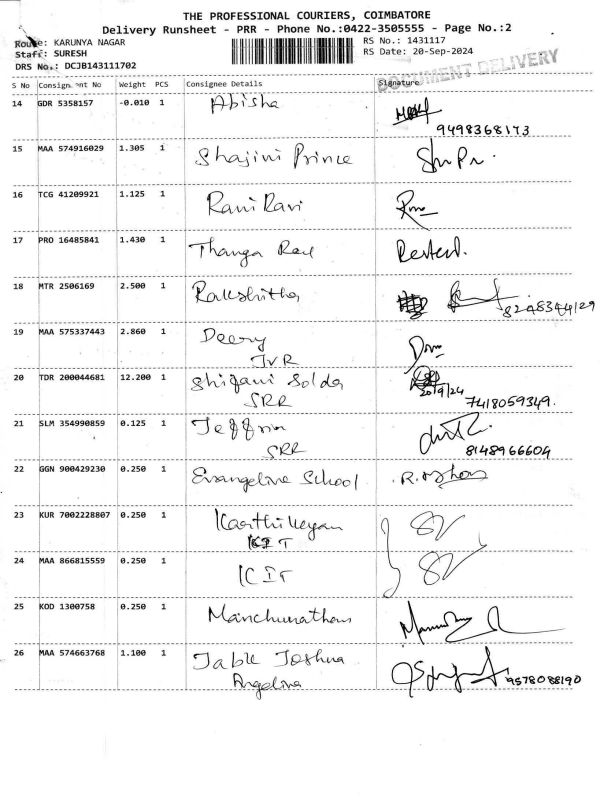 THE PROFESSIONAL COURIERS, COIMBATORE
Delivery Runsheet - PRR - Phone No.:0422-3505555 - Page No.:2
Route: KARUNYA NAGAR RS No.: 1431117
Staff: SURESH RS Date: 20-Sep-2024
DRS No.: DCJB143111702
DOCUMENT DELIVERY
S No Consignment No Weight PCS Consignee Details Signature
14 GDR 5358157 -0.010 1 Abisha
9498368173
15 MAA 574916029 1.305 1 Shajini Prince
16 TCG 41209921 1.125 1 Rani Ravi
17 PRO 16485841 1.430 1 Thanga
18 MTR 2506169 2.500 1 Rakshitha
8248344129
19 MAA 575337443 2.860 1
JVR
20 TDR 200044681 12.200 1 Shifani
SRR 20/9/24 7418059349.
21 SLM 354990859 0.125 1
SRR 8148966604
22 GGN 900429230 0.250 1 Evangeline School
23 KUR 7002228807 0.250 1 Karthikeyan
KIT
24 MAA 866815559 0.250 1 KIT
25 KOD 1300758 0.250 1
26 MAA 574663768 1.100 1 Joshua
Angelina 9578088190